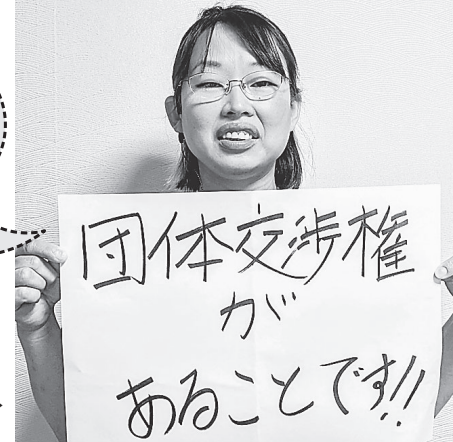 団体交渉権
が
あることです!!